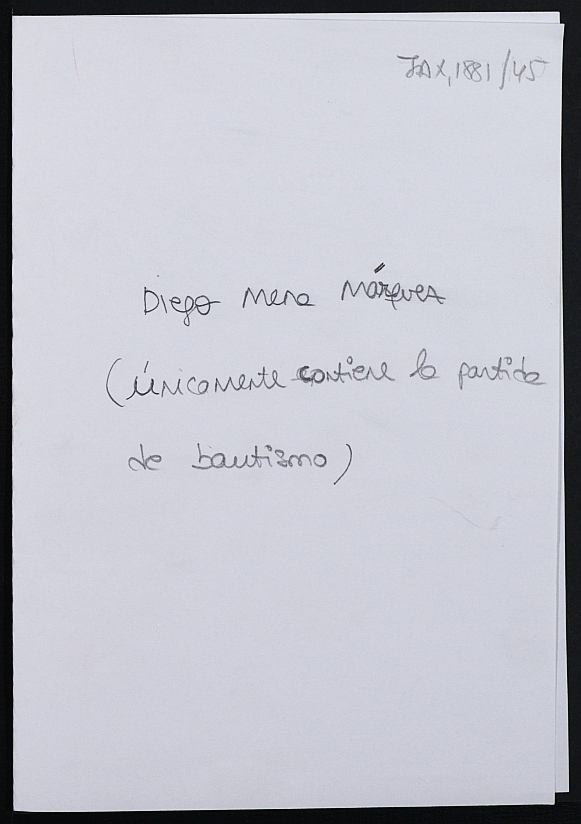 JAX,1881/45
Diego Mena Márquez
(únicamente contiene la partida
de bautismo)